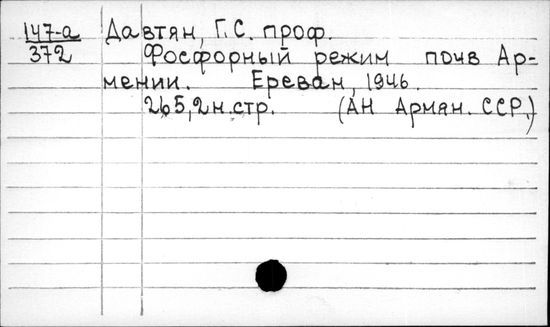 147-а Давтян, Г.С. проф.
372 Фосфорный режим почв Ар-
мении. Ереван, 1946.
265, 2 н. стр. (АН Армян. ССР.)